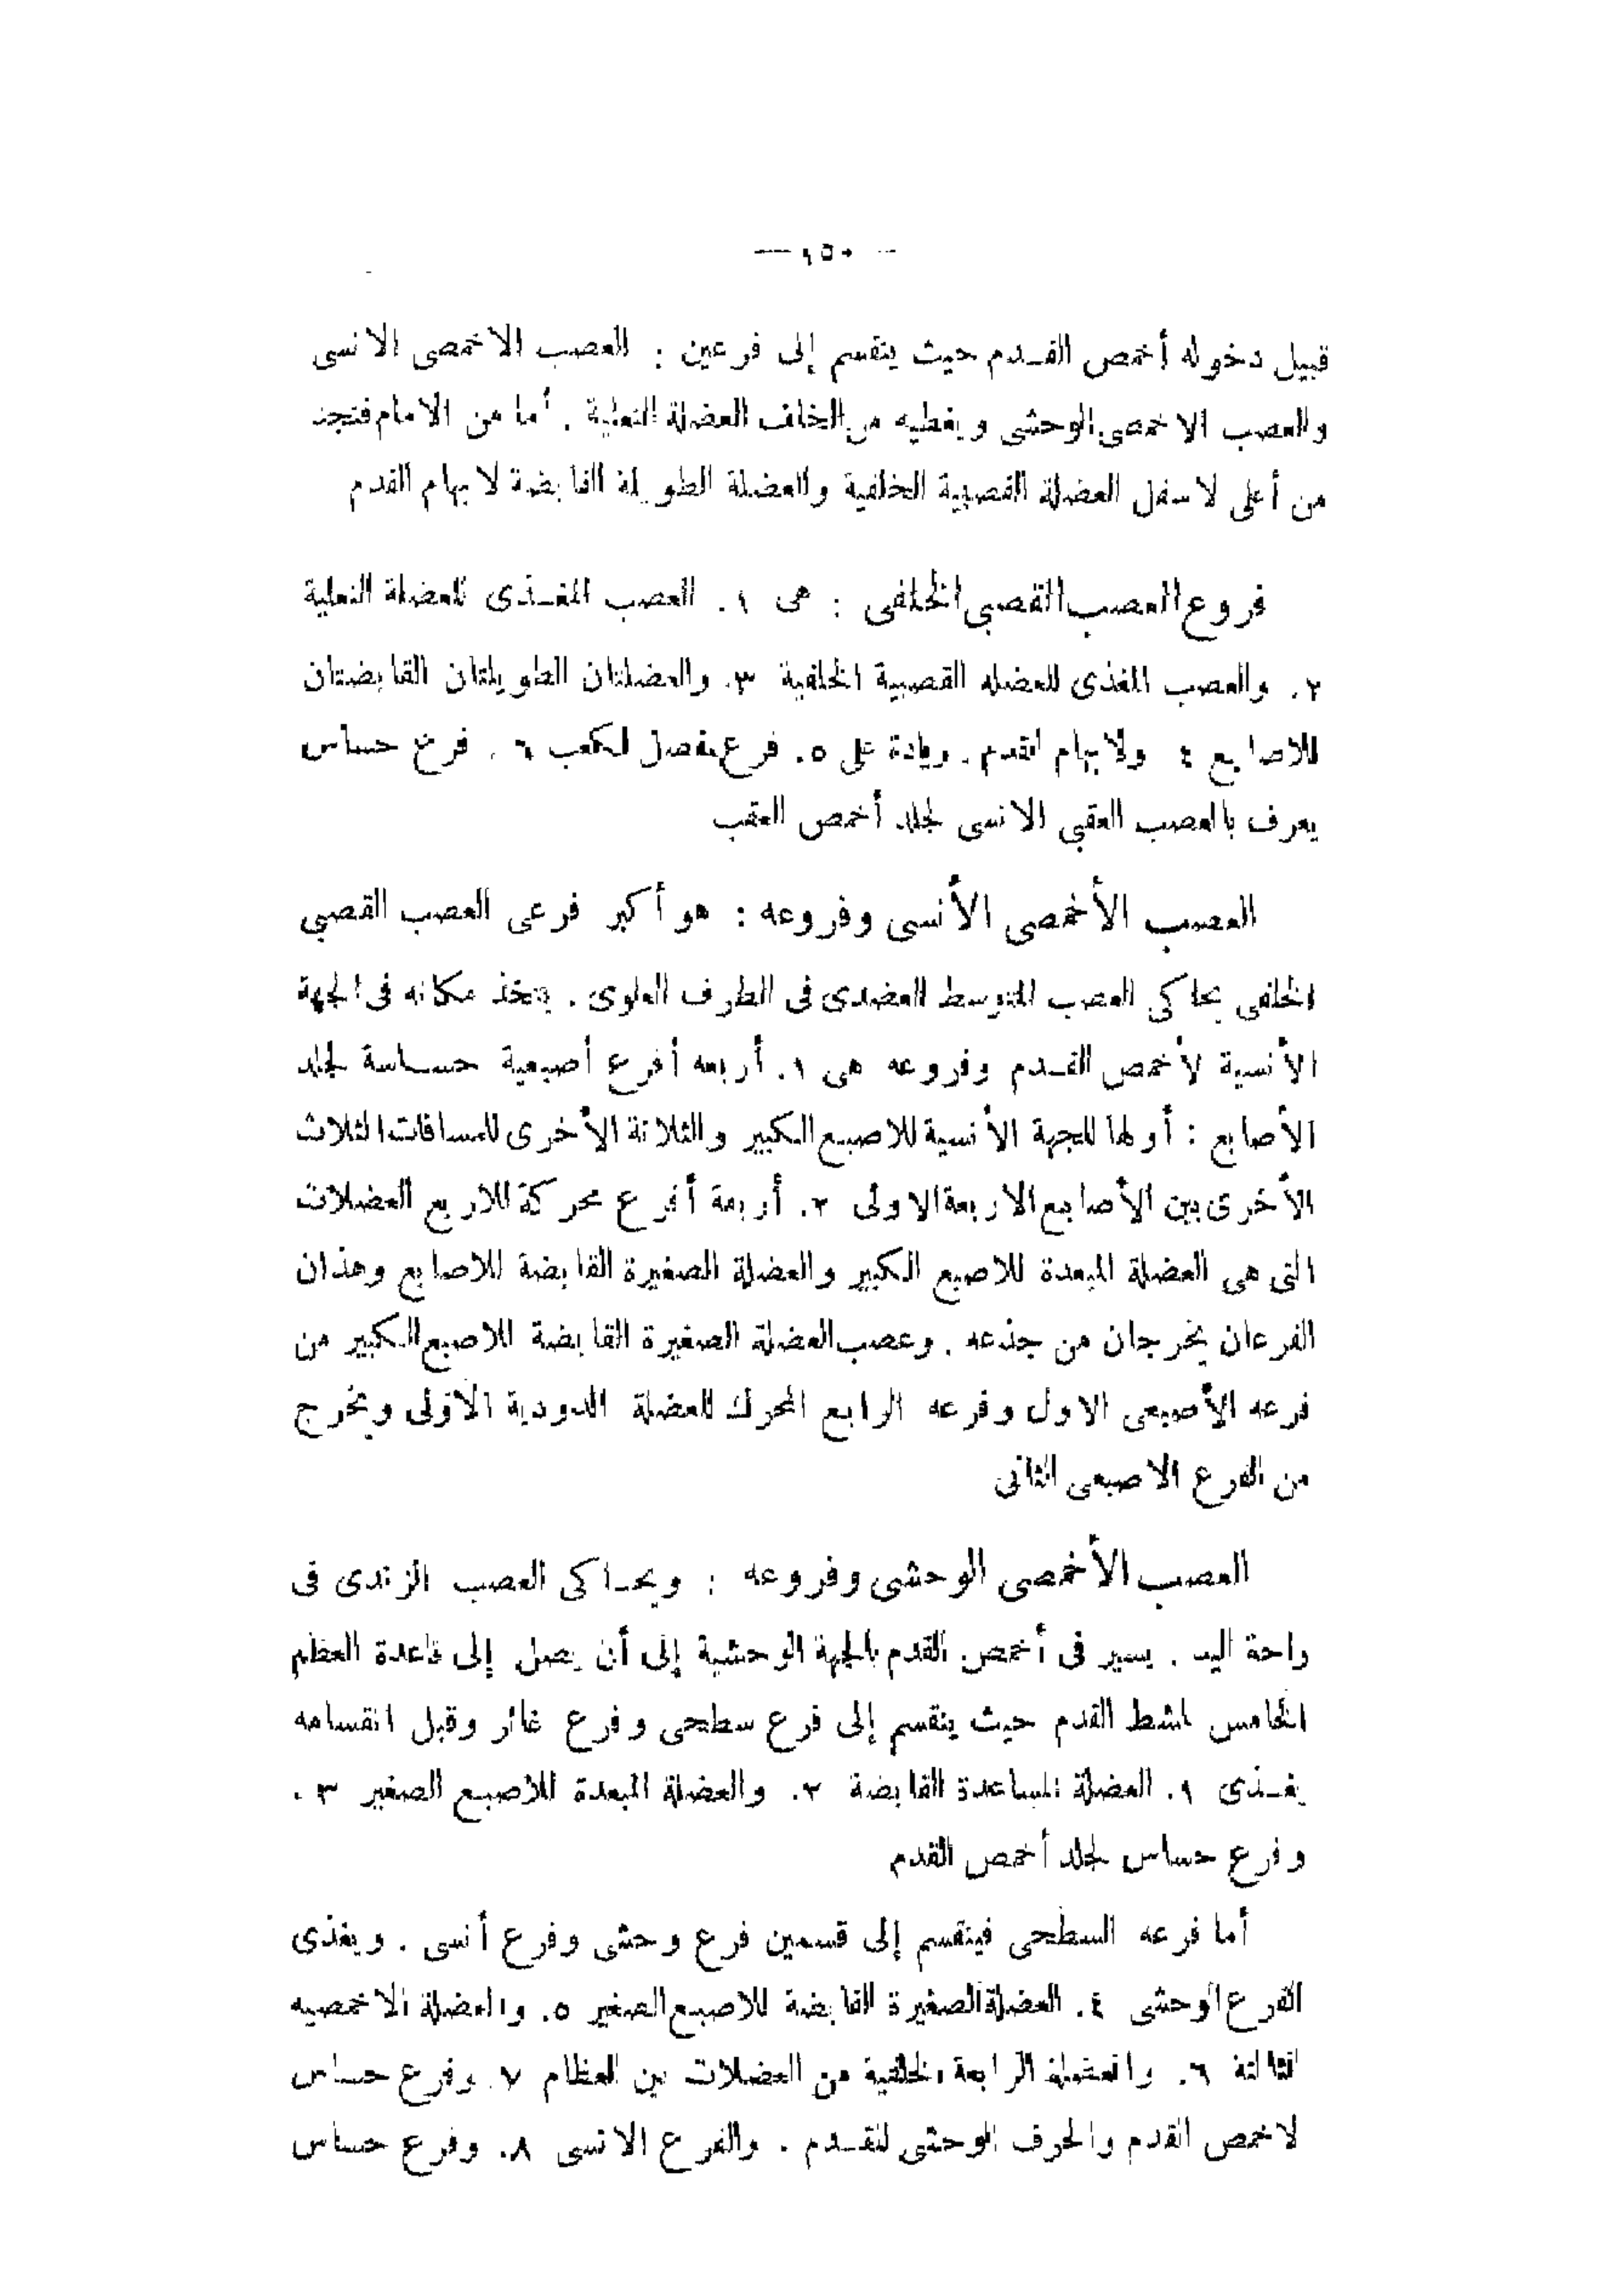 — ١٥٠ —
قبيل دخوله أخمص القـدم حيث ينقسم إلى فرعين : العصب الاخمصى الانسى
والعصب الاخمصى الوحشى ويغطيه من الخلف العضلة النعلية . أما من الامام فتجد
من أعلى لاسفل العضلة القصبية الخلفية والعضلة الطويلة القابضة لابهام القدم
فروع العصب القصبى الخلفى : هى ١. العصب المغـذى للعضلة النعلية
٢. والعصب المغذى للعضله القصبية الخلفية ٣. والعضلتان الطويلتان القابضتان
للاصابع ٤ ولابهام القدم . زيادة على ٥. فرع مفصل الكعب ٦ . فرع حساس
يعرف بالعصب العقبى الانسى لجلد أخمص العقب
العصب الأخمصى الأنسى وفروعه : هو أكبر فرعى العصب القصبى
الخلفى يحاكى العصب المتوسط العضدى فى الطرف العلوى . يتخذ مكانه فى الجهة
الأنسية لأخمص القـدم وفروعه هى ١. أربعه أفرع أصبعية حسـاسة لجلد
الأصابع : أولها للجهة الأنسية للاصبع الكبير والثلاثة الأخرى للمسافات الثلاث
الأخرى بين الأصابع الاربعة الاولى ٢. أربعة أفرع محركة للاربع العضلات
التى هى العضلة المبعدة للاصبع الكبير والعضلة الصغيرة القابضة للاصابع وهذان
الفرعان يخرجان من جذعه . وعصب العضلة الصغيرة القابضة للاصبع الكبير من
فرعه الأصبعى الاول وفرعه الرابع المحرك للعضلة الدودية الأولى ويخرج
من الفرع الاصبعى الثانى
العصب الأخمصى الوحشى وفروعه : ويحـاكى العصب الزندى فى
راحة اليد . يسير فى أخمص القدم بالجهة الوحشية إلى أن يصل إلى قاعدة العظم
الخامس لمشط القدم حيث ينقسم إلى فرع سطحى وفرع غائر وقبل انقسامه
يغـذى ١. العضلة المساعدة القابضة ٢. والعضلة المبعدة للاصبع الصغير ٣ .
وفرع حساس لجلد أخمص القدم
أما فرعه السطحى فينقسم إلى قسمين فرع وحشى وفرع أنسى . ويغذى
الفرع الوحشى ٤. العضلة الصغيرة القابضة للاصبع الصغير ٥. والعضلة الاخمصيه
الثالثة ٦. والعضلة الرابعة الخلفية من العضلات بين العظام ٧. وفرع حساس
لاخمص القدم والحرف الوحشى للقـدم . والفرع الانسى ٨. وفرع حساس